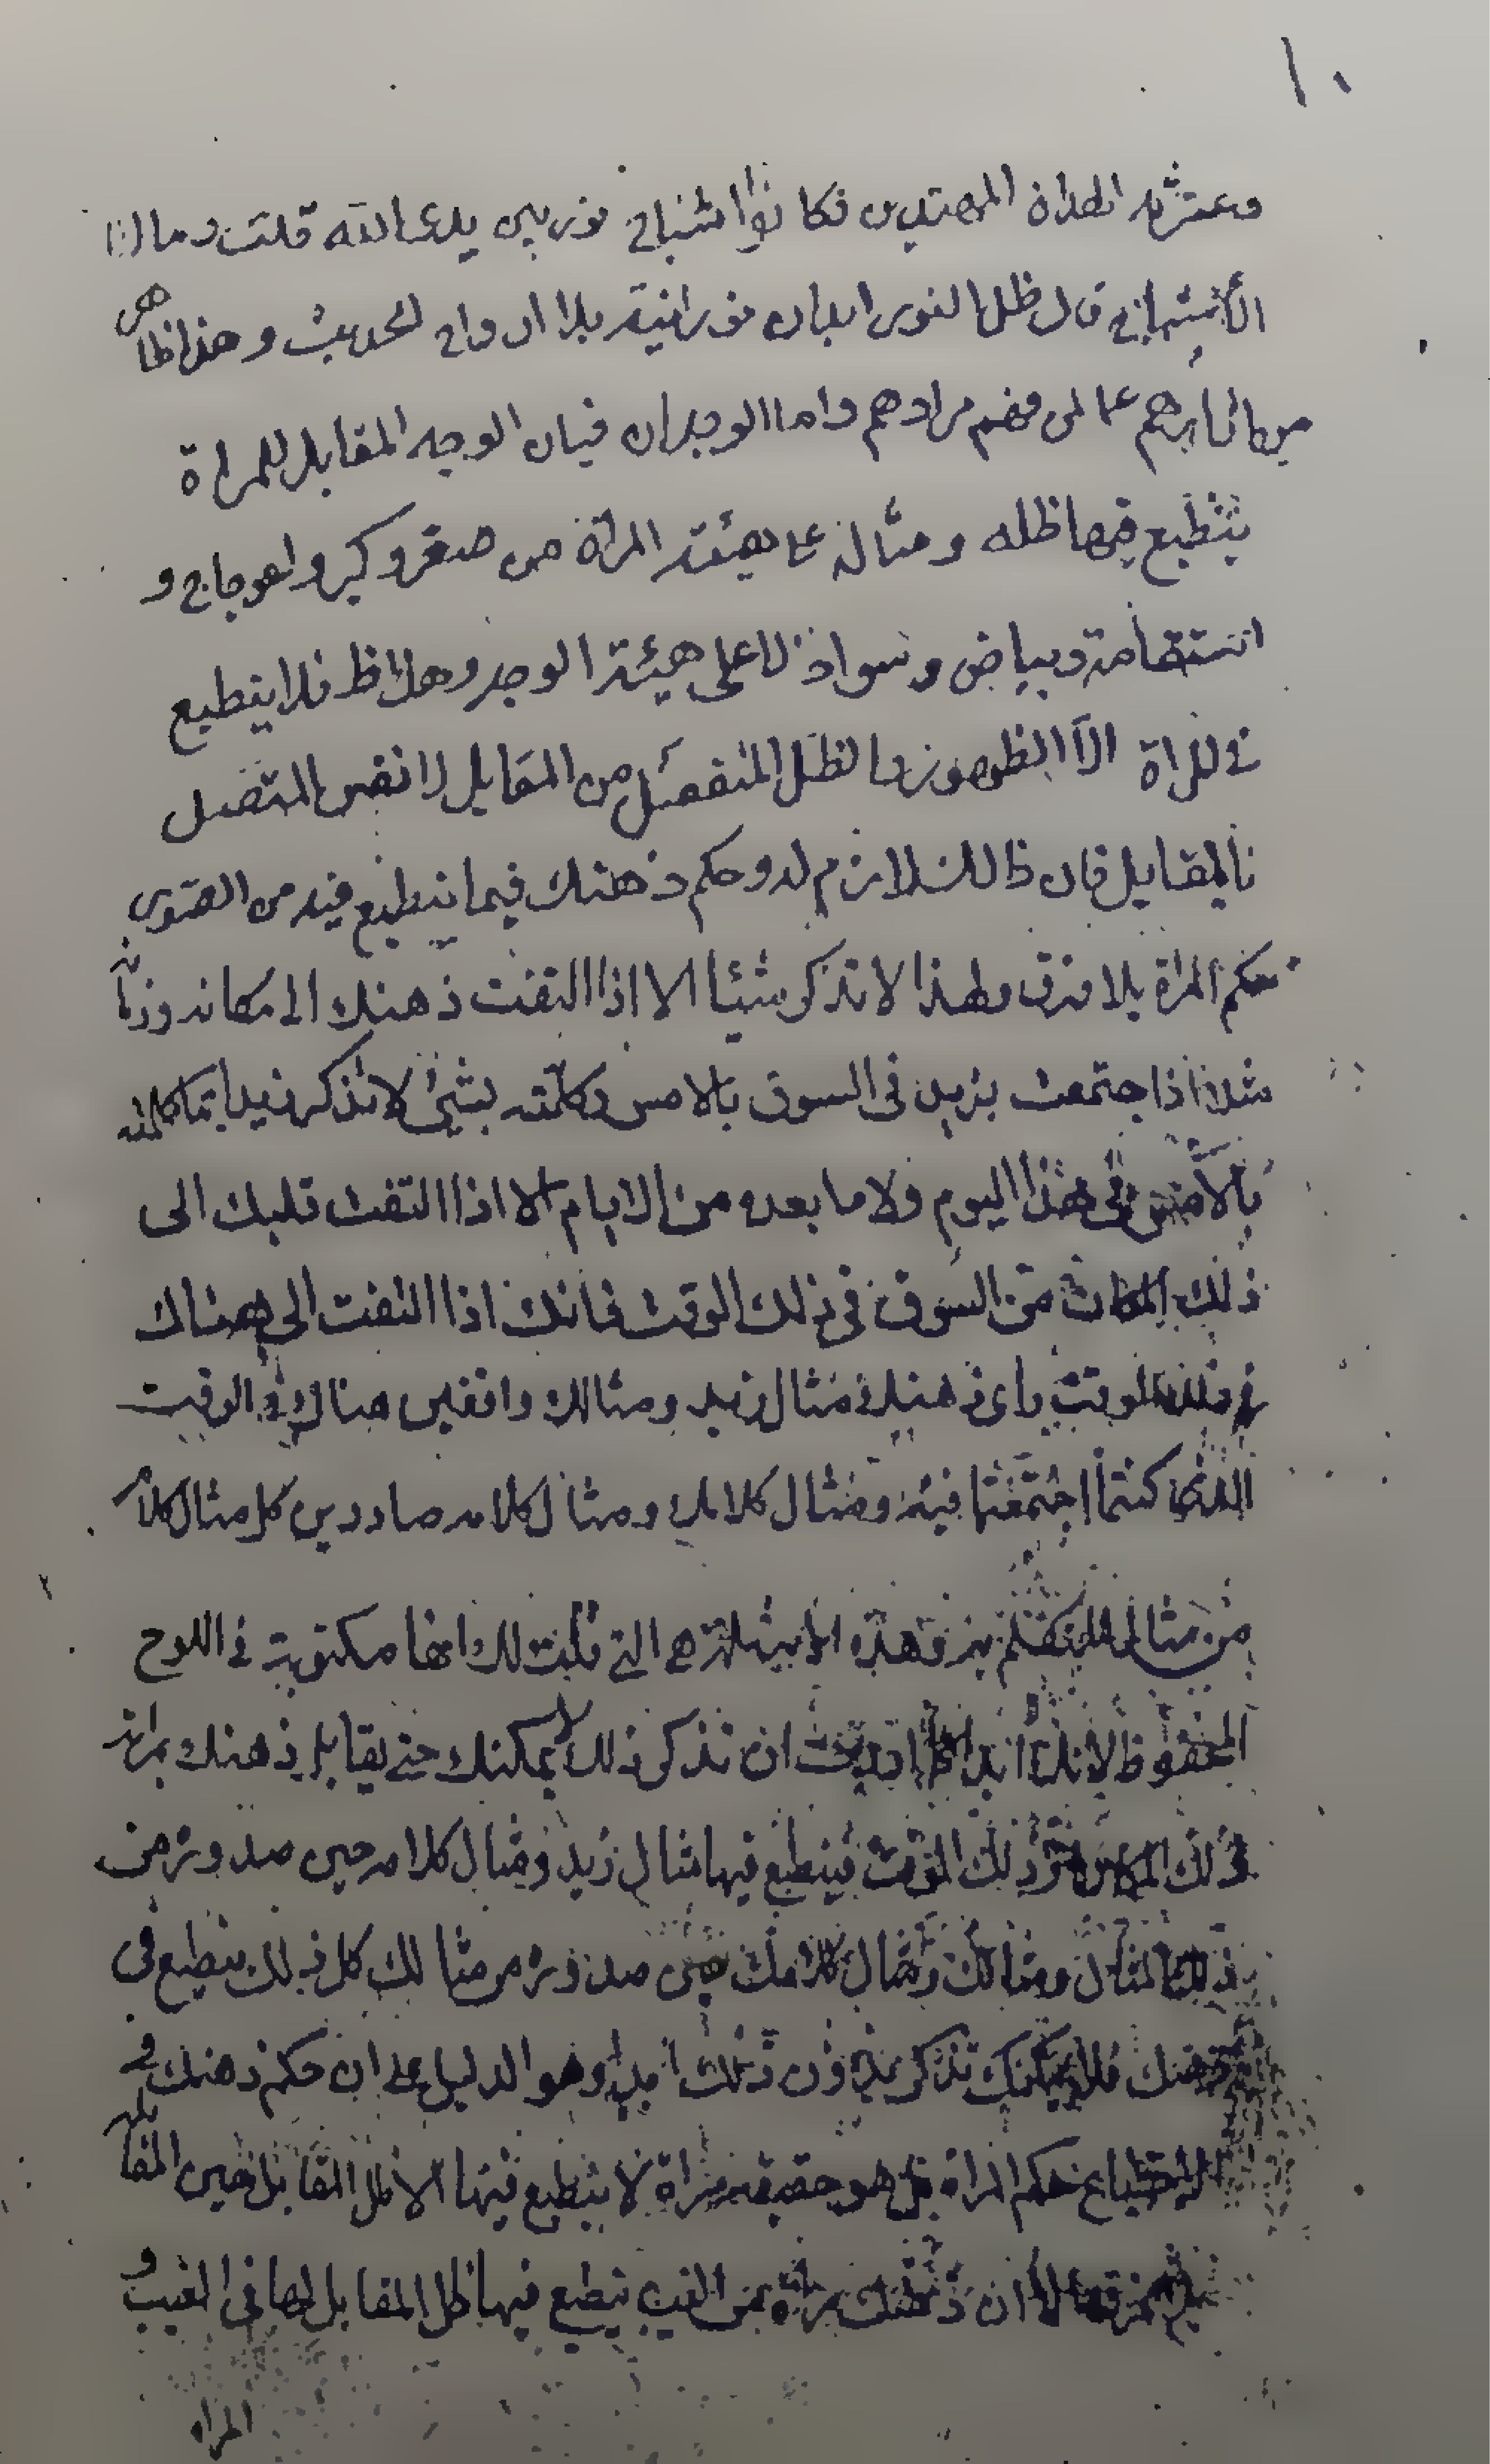 ١٠
وعترته الهداة المهتدين فكانوا اشباح نور بين يدي الله قلت وما
الاشباح قال ظل النور ابدان نورانية بلا ارواح الحديث وهذا ظاهر
من اخبارهم عما لمن فهم مرادهم واما الوجدان فبان الوجه المقابل للمراة
ينطبع فيها ظله ومثاله على هيئة المرآة من صغر وكبر واعوجاج و
استقامة وبياض وسواد لا على هيئة الوجه وهذا ظ فلا ينطبع
في المراة الا الظهور والظل المنفصل من المقابل لا نفس المتصل
بالمقابل فان ذالك لازم له وحكم ذهنك فيما ينطبع فيه من الصور
حكم المراة بلا فرق ولهذا لا تذكر شيئا الا اذا التفت ذهنك الى مكانه وزمانه
مثلا اذا اجتمعت بزيد في السوق بالامس وكلمته بشيئ لا تذكر زيدا بما كلمته
بالامس في هذا اليوم ولا ما بعده من الايام الا اذا التفت قلبك الى
ذلك المكان من السوق في ذلك الوقت فانك اذا التفت الى هناك
في ذلك الوقت راى ذهنك مثال زيد ومثالك واقفين هناك في الوقت
الذي كنتما اجتمعتما فيه ومثال كلامك ومثال كلامه صادرين كل مثال كلام
من مثال المتكلم به وهذه الامثلة هي التي قلت لك انها مكتوبة في اللوح
المحفوظ لانك ابدا اذا اردت ان تذكر ذلك لا يمكنك حتى يقابل ذهنك بمراته
ذلك المكان وذلك الوقت فينطبع فيها مثال زيد ومثال كلامه حين صدوره من
ذلك المثال ومثالك ومثال كلامك حين صدوره من مثالك كل ذلك ينطبع في
ذهنك فلا يمكنك تذكر بدون ذلك ابدا وهو الدليل على ان حكم ذهنك في
الانطباع حكم المراة بل هو حقيقة مراة لا ينطبع فيها الا ظل المقابل حين المقابلة
بلا فرق الا ان ذهنك مراة من الغيب ينطبع فيها ظل المقابل لها في الغيب و
المراة